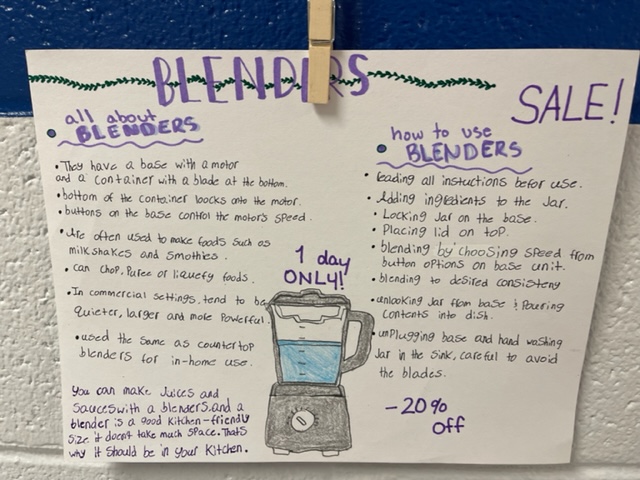 BLENDERS
SALE!
all about
BLENDERS
• They have a base with a motor
and a container with a blade at the bottom.
• bottom of the container loocks onto the motor.
• buttons on the base control the motor's speed.
• Are often used to make foods such as
milkshakes and smothies.
• can chop, Puree or liquefy foods.
• In commercial settings, tend to be
Quieter, larger and more Powerful.
• used the same as countertop
blenders for in-home use.
You can make Juices and
sauces with a blenders. and a
blender is a good kitchen-friendly
size it doent take much space. Thats
why it should be in your kitchen.
1 day
ONLY!
how to use
BLENDERS
• Reading all instuctions befor use.
• Adding ingredients to the Jar.
• Locking Jar on the base.
• Placing lid on top.
• blending by choosing speed from
button options on base unit.
• blending to desired consisteny
• unlooking Jar from base & Pouring
contents into dish.
• unPlugging base and hand washing
Jar in the sink, careful to avoid
the blades.
-20%
off